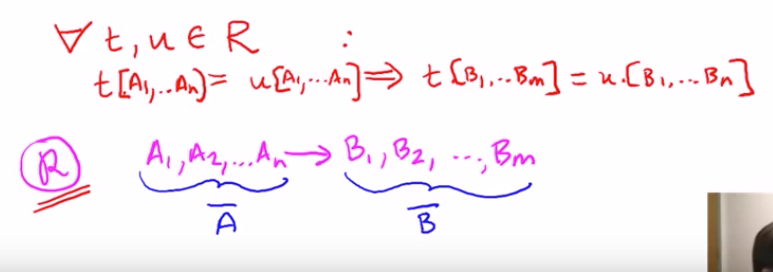 ∀ t, u ∈ R :
t[A₁,..Aₙ] = u[A₁,...Aₙ] ⟹ t[B₁,...Bₘ] = u.[B₁,...Bₙ]
R A₁, A₂, ...Aₙ → B₁, B₂, ..., Bₘ
A̅ B̅